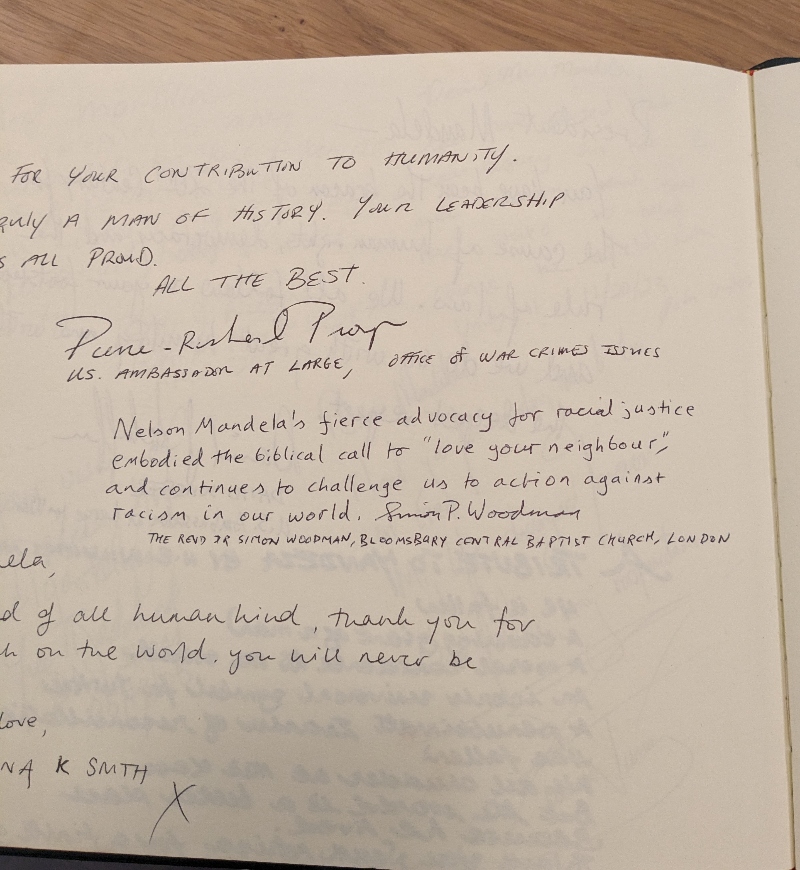 FOR YOUR CONTRIBUTION TO HUMANITY.
A MAN OF HISTORY. YOUR LEADERSHIP
ALL PROUD.
ALL THE BEST.
Pierre-Richard Prosper
U.S. AMBASSADOR AT LARGE, OFFICE of WAR CRIMES ISSUES
Nelson Mandela's fierce advocacy for racial justice
embodied the biblical call to "love your neighbour",
and continues to challenge us to action against
racism in our world. Simon P. Woodman
THE REVD DR SIMON WOODMAN, BLOOMSBURY CENTRAL BAPTIST CHURCH, LONDON
ela,
of all human kind, thank you for
on the world. you will never be
love,
NA K SMTH
X